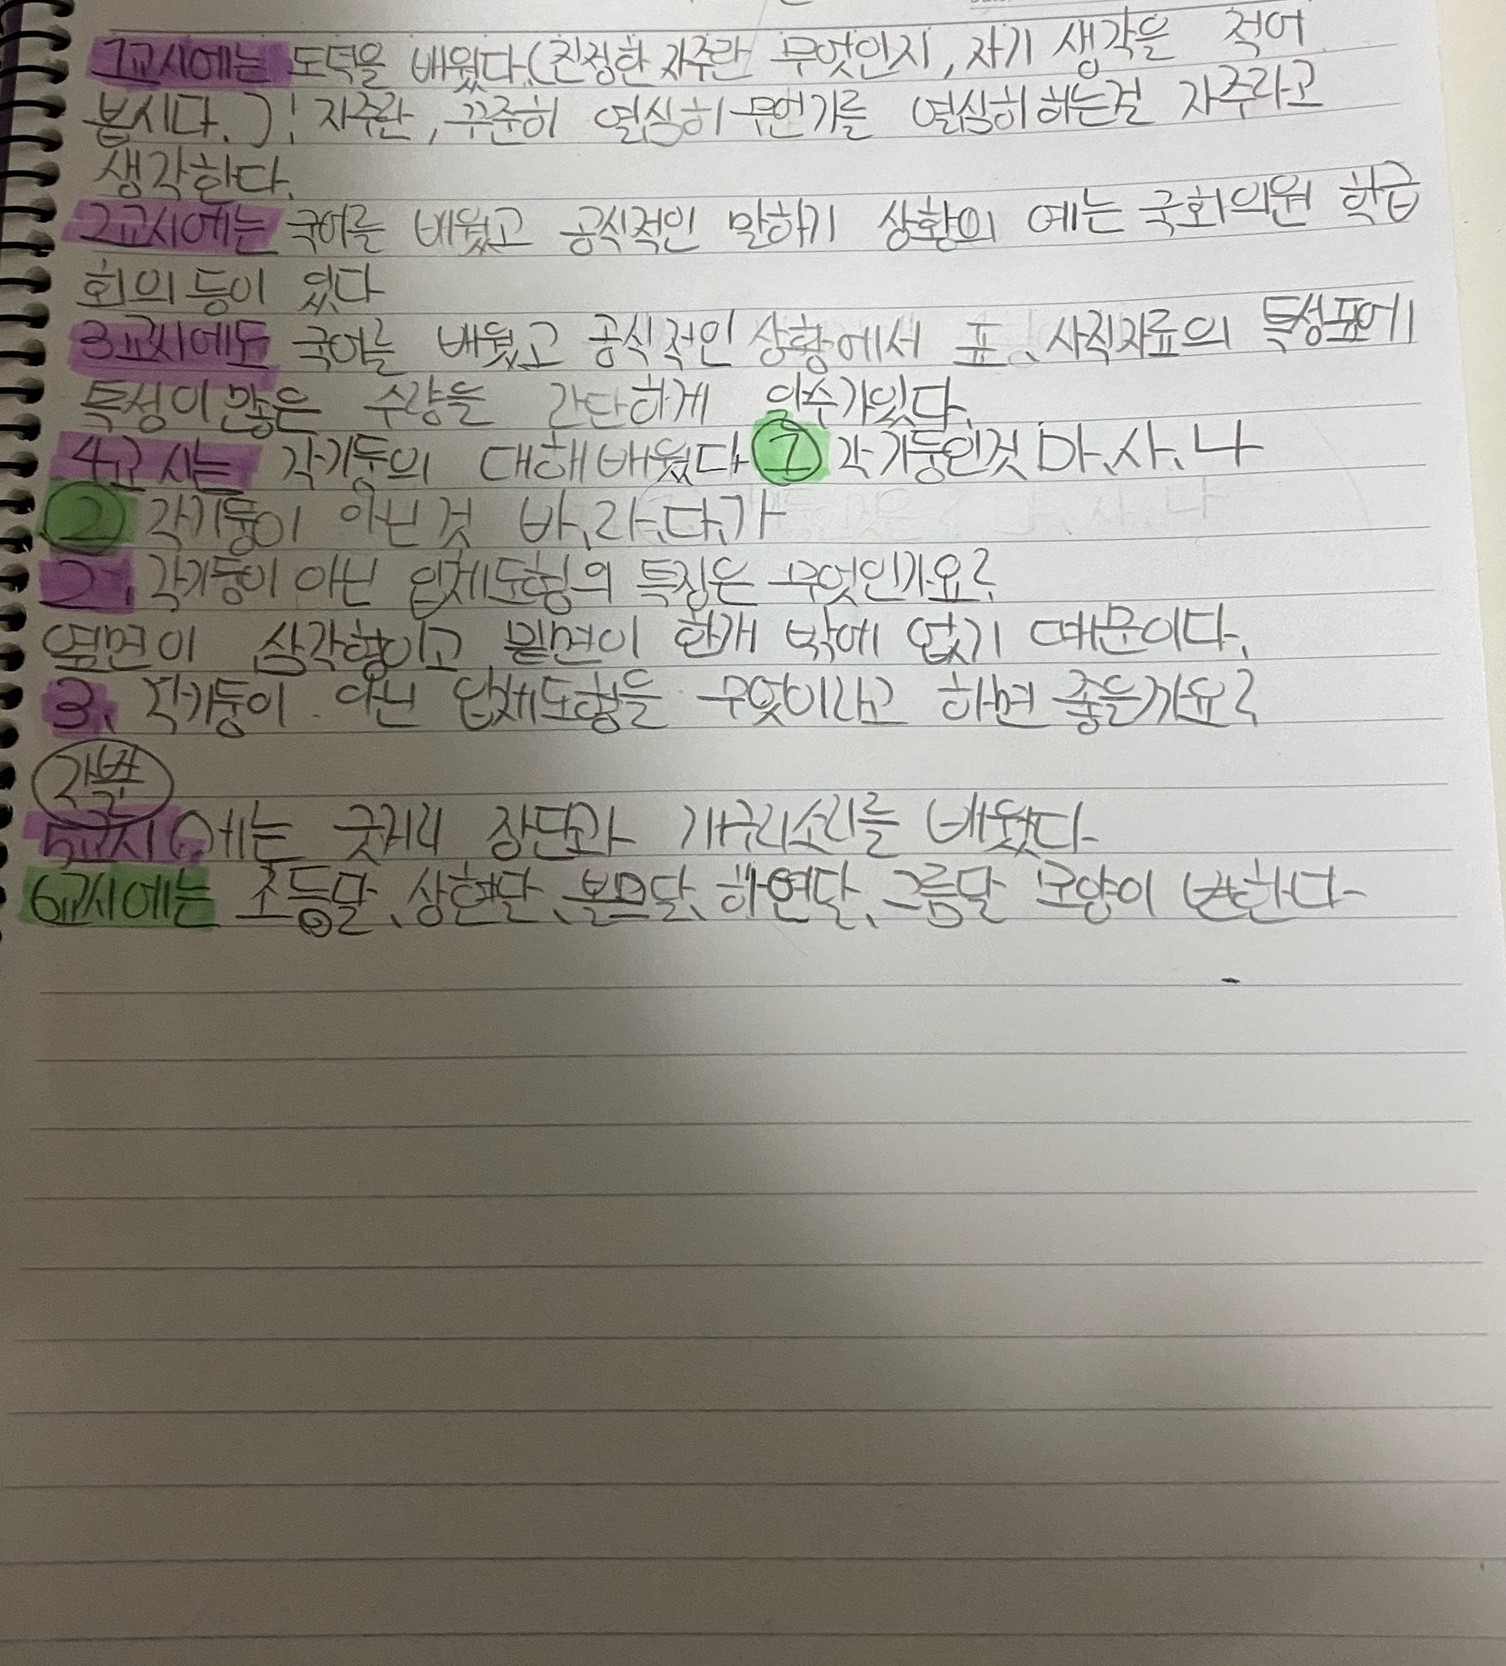 1교시에는 도덕을 배웠다.(진정한 자주란 무엇인지, 자기 생각을 적어
봅시다.)! 자주란, 꾸준히 열심히 무언가를 열심히하는걸 자주라고
생각한다.
2교시에는 국어를 배웠고 공식적인 말하기 상황의 예는 국회의원 학급
회의 등이 있다
3교시에도 국어를 배웠고 공식적인 상황에서 표, 사직자료의 특성표에
특성이 많은 수량을 간단하게 수가있다.
4교시는 각기둥의 대해배웠다. ① 각기둥인것 마, 사, 나
② 각기둥이 아닌 것 바, 라, 다, 가
2. 각기둥이 아닌 입체도형의 특징은 무엇인가요?
옆면이 삼각형이고 밑면이 한개 밖에 없기 때문이다.
3. 각기둥이 아닌 입체도형을 무엇이라고 하면 좋을까요?
각뿔
5교시에는 굿거리 장단과 개구리소리를 배웠다
6교시에는 초승달, 상현달, 보름달, 하현달, 그믐달 모양이 변한다